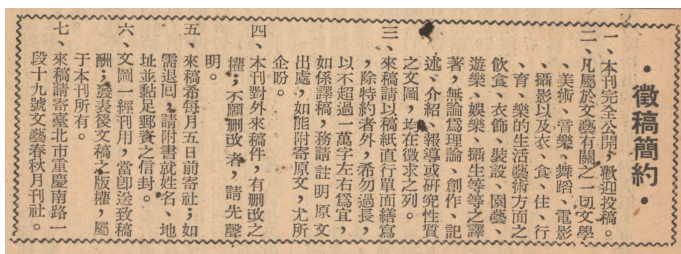 ・徵稿簡約・
一、本刊完全公開，歡迎投稿。
二、凡屬於文藝有關之一切文學
、美術、音樂、舞蹈、電影
、攝影以及衣、食、住、行
、育、樂的生活藝術方面之
飲食、衣飾、裝設、園藝、
遊樂、娛樂、攝生等等之譯
著，無論爲理論、創作、記
述、介紹、報導或研究性質
之文圖，均在徵求之列。
三、來稿請以稿紙直行單面繕寫
，除特約者外，希勿過長，
以不超過一萬字左右爲宜，
如係譯稿，務請註明原文
出處，如能附寄原文，尤所
企盼。
四、本刊對外來稿件，有刪改之
權；不願刪改者，請先聲
明。
五、來稿希每月五日前寄社；如
需退囘，請附書就姓名、地
址並黏足郵資之信封。
六、文圖一經刊用，當卽送致稿
酬；發表後文稿之版權，屬
于本刊所有。
七、來稿請寄臺北市重慶南路一
段十九號文藝春秋月刊社。